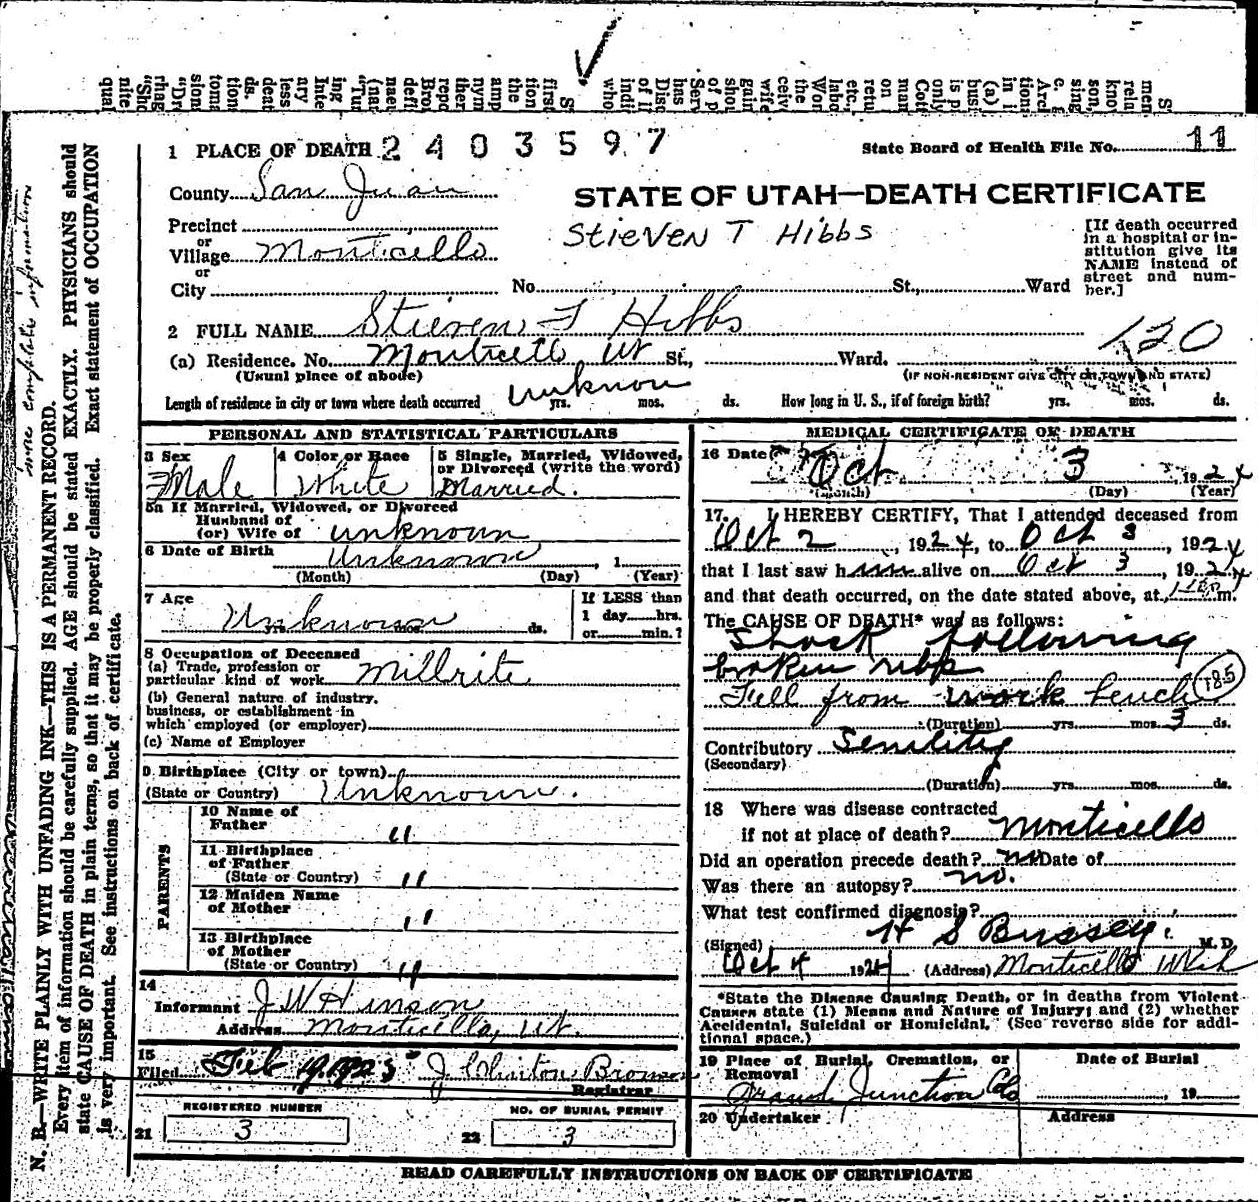 1 PLACE OF DEATH 2403597
State Board of Health File No. 11
County San Juan
STATE OF UTAH—DEATH CERTIFICATE
Precinct
or
Village Monticello
or
City
Stieven T Hibbs
[If death occurred
in a hospital or in-
stitution give its
NAME instead of
street and num-
ber.]
No. St., Ward
2 FULL NAME Stieven T Hibbs
120
(a) Residence. No. Monticello Ut St., Ward.
(Usual place of abode)
(IF NON-RESIDENT GIVE CITY OR TOWN AND STATE)
Length of residence in city or town where death occurred unknon yrs. mos. ds. How long in U. S., if of foreign birth? yrs. mos. ds.
PERSONAL AND STATISTICAL PARTICULARS
3 Sex
Male
4 Color or Race
White
5 Single, Married, Widowed,
or Divorced (write the word)
Married.
5a If Married, Widowed, or Divorced
Husband of
(or) Wife of unknown
6 Date of Birth Unknown, 1
(Month) (Day) (Year)
7 Age
Unknown
yrs. mos. ds.
If LESS than
1 day hrs.
or min.?
8 Occupation of Deceased
(a) Trade, profession or
particular kind of work Millrite
(b) General nature of industry,
business, or establishment in
which employed (or employer)
(c) Name of Employer
9 Birthplace (City or town)
(State or Country) Unknown.
PARENTS
10 Name of
Father "
11 Birthplace
of Father
(State or Country) "
12 Maiden Name
of Mother "
13 Birthplace
of Mother
(State or Country) "
14
Informant J W Hinson
Address Monticello, Ut.
15
Filed Feb 19 1925 J Clinton Bronson
Registrar
REGISTERED NUMBER
21 3
NO. OF BURIAL PERMIT
22 3
MEDICAL CERTIFICATE OF DEATH
16 Date Oct 3 1924
(Month) (Day) (Year)
17. I HEREBY CERTIFY, That I attended deceased from
Oct 2, 1924, to Oct 3, 1924
that I last saw him alive on Oct 3, 1924
and that death occurred, on the date stated above, at m.
The CAUSE OF DEATH* was as follows:
Shock following
broken ribs
Fell from work bench
185
(Duration) yrs. mos. 3 ds.
Contributory Senility
(Secondary)
(Duration) yrs. mos. ds.
18 Where was disease contracted
if not at place of death? Monticello
Did an operation precede death? no Date of
Was there an autopsy? no.
What test confirmed diagnosis?
(Signed) H S Bussey, M. D.
Oct 4 1924 (Address) Monticello Utah
*State the Disease Causing Death, or in deaths from Violent
Causes state (1) Means and Nature of Injury; and (2) whether
Accidental, Suicidal or Homicidal. (See reverse side for addi-
tional space.)
19 Place of Burial, Cremation, or
Removal
Grand Junction Colo
Date of Burial
, 19
20 Undertaker
Address
READ CAREFULLY INSTRUCTIONS ON BACK OF CERTIFICATE
N. B.—WRITE PLAINLY WITH UNFADING INK—THIS IS A PERMANENT RECORD.
Every item of information should be carefully supplied. AGE should be stated EXACTLY. PHYSICIANS should
state CAUSE OF DEATH in plain terms, so that it may be properly classified. Exact statement of OCCUPATION
is very important. See instructions on back of certificate.
more complete information